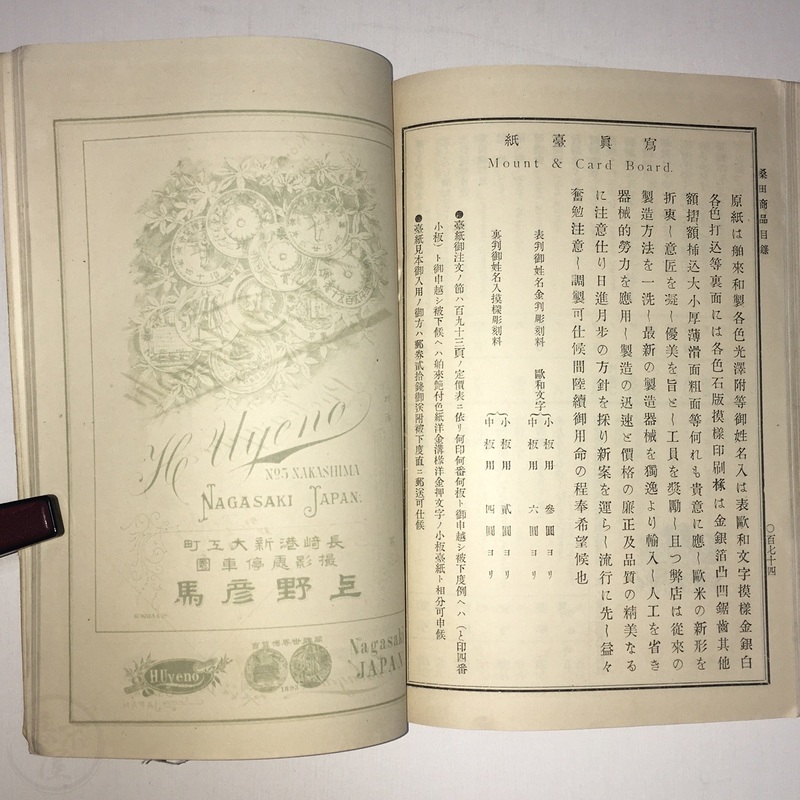 桑田商品目錄
〇百七十四
寫眞臺紙
Mount & Card Board.
原紙は舶來和製各色光澤附等御姓名入は表歐和文字摸樣金銀白
各色打込等裏面には各色石版摸樣印刷椽は金銀箔凸凹鋸齒其他
額摺額揷込大小厚薄滑面粗面等何れも貴意に應し歐米の新形を
折衷し意匠を凝し優美を旨とし工員を奬勵し且つ弊店は從來の
製造方法を一洗し最新の製造器械を獨逸より輸入し人工を省き
器械的勞力を應用し製造の迅速と價格の廉正及品質の精美なる
に注意仕り日進月步の方針を採り新案を運らし流行に先し益々
奮勉注意し調製可仕候間陸續御用命の程奉希望候也
表判御姓名金判彫刻料 歐和文字 小板用 參圓ヨリ
中板用 六圓ヨリ
裏判御姓名入摸樣彫刻料 小板用 貳圓ヨリ
中板用 四圓ヨリ
●臺紙御注文ノ節ハ百九十三頁ノ定價表ニ依リ何印何番何板ト御申越シ被下度例ヘハ(と印四番
小板)ト御申越シ被下候ヘハ舶來艷付色紙洋金溝椽洋金押文字ノ小板臺紙ト相分可申候
●臺紙見本御入用ノ御方ハ郵券貳拾錢御送附被下度直ニ郵送可仕候
H. Uyeno
No5 NAKASHIMA
NAGASAKI JAPAN.
町工大新港崎長
園車停處影撮
馬彥野上
HUyeno
Nagasaki
JAPAN